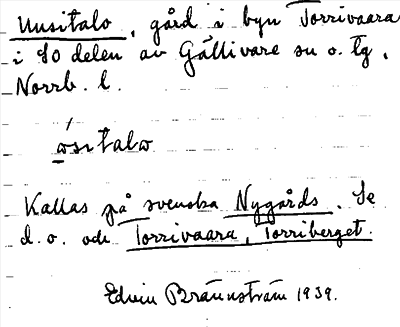 Uusitalo, gård i byn Torrivaara
i SO delen av Gällivare sn o. tg,
Norrb. l.
Kallas på svenska Nygårds. Se
d. o. och Torrivaara, Torriberget.
Edvin Brännström 1939.